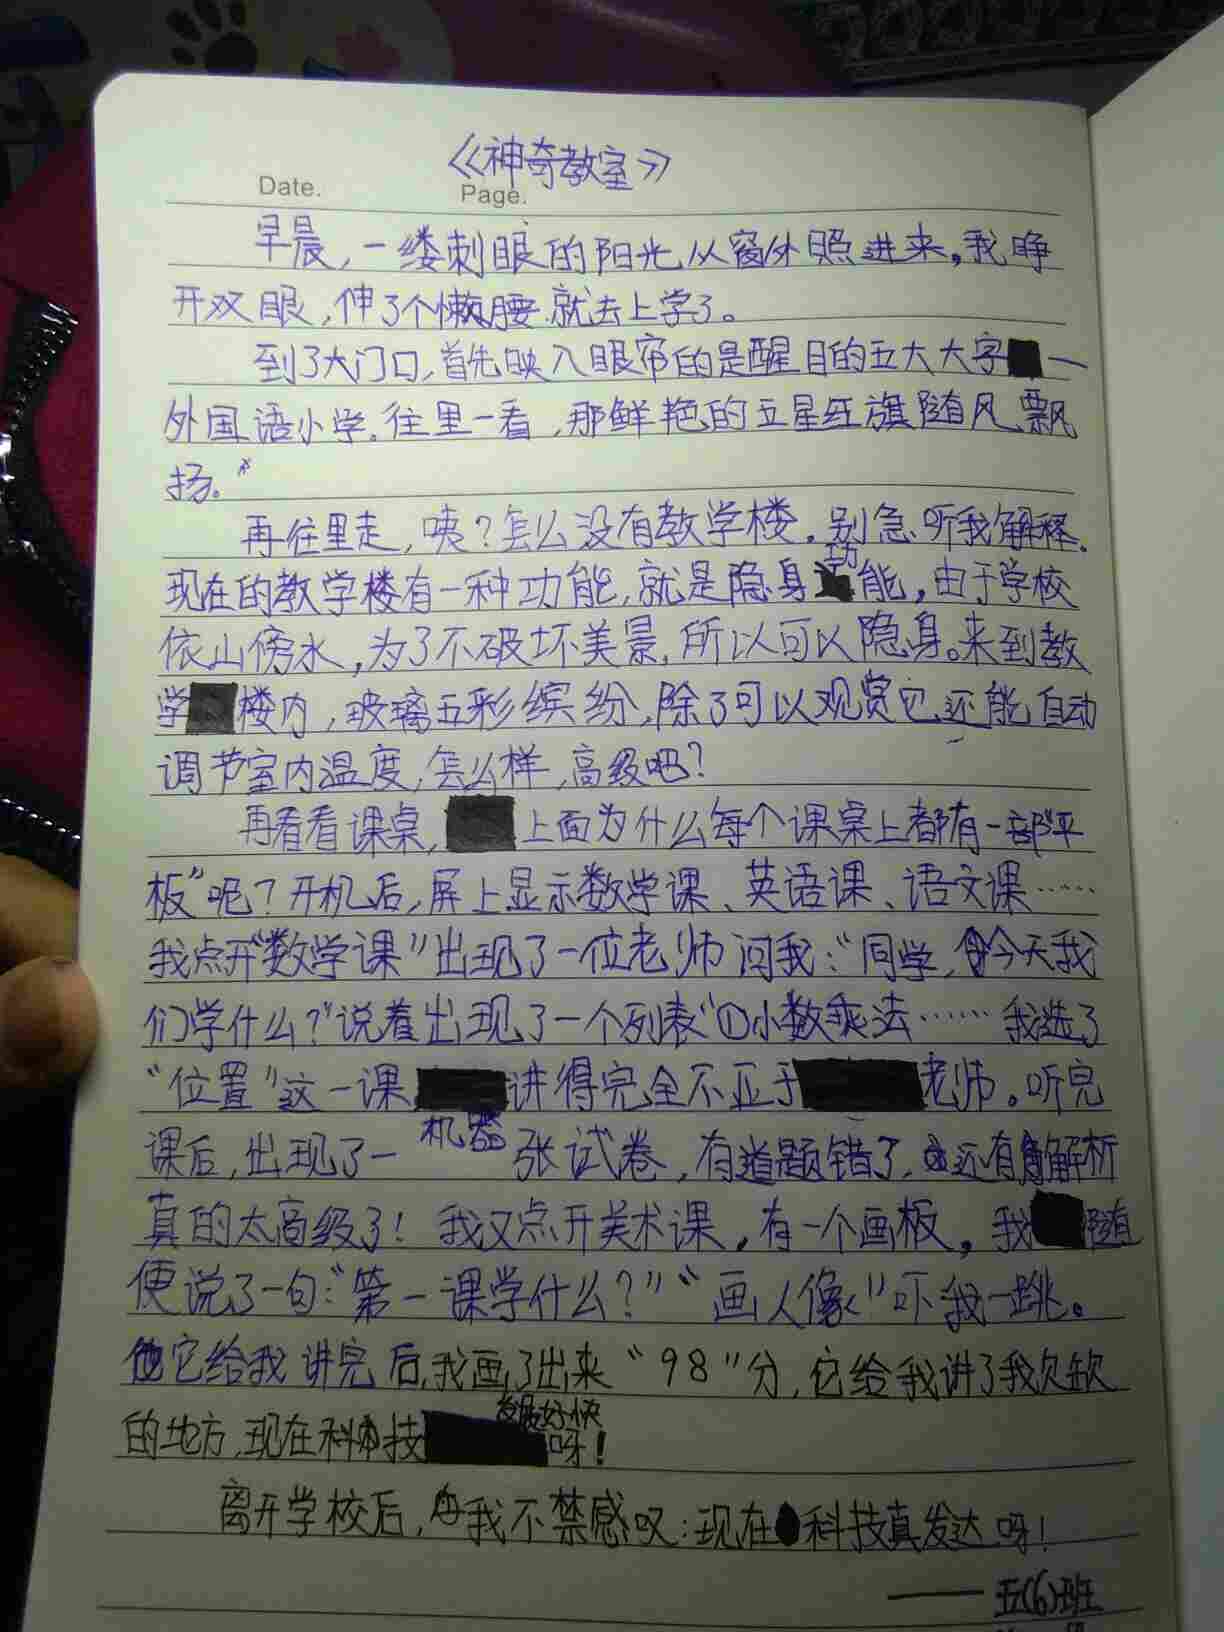 《神奇教室》
Date.
Page.
早晨，一缕刺眼的阳光从窗外照进来。我睁
开双眼，伸了个懒腰.就去上学了。
到了大门口，首先映入眼帘的是醒目的五大大字一
外国语小学。往里一看，那鲜艳的五星红旗随风飘
扬。”
再往里走，咦？怎么没有教学楼。别急，听我解释。
现在的教学楼有一种功能，就是隐身功能，由于学校
依山傍水，为了不破坏美景，所以可以隐身。来到教
学楼内，玻璃五彩缤纷，除了可以观赏它，还能自动
调节室内温度，怎么样，高级吧？
再看看课桌，上面为什么每个课桌上都有一部“平
板”呢？开机后，屏上显示数学课、英语课、语文课……
我点开“数学课”出现了一位老师问我：“同学，今天我
们学什么？”说着出现了一个列表“①小数乘法…… 我选了
“位置”这一课讲得完全不亚于老师。听完
机器
课后，出现了一张试卷，有道题错了，还有解析
真的太高级了！我又点开美术课，有一个画板，我随
便说了一句：“第一课学什么？”“画人像”吓我一跳。
它给我讲完后，我画了出来“98”分，它给我讲了我欠缺
发展好快
的地方，现在科技呀！
离开学校后，我不禁感叹：现在科技真发达呀！
——五(6)班